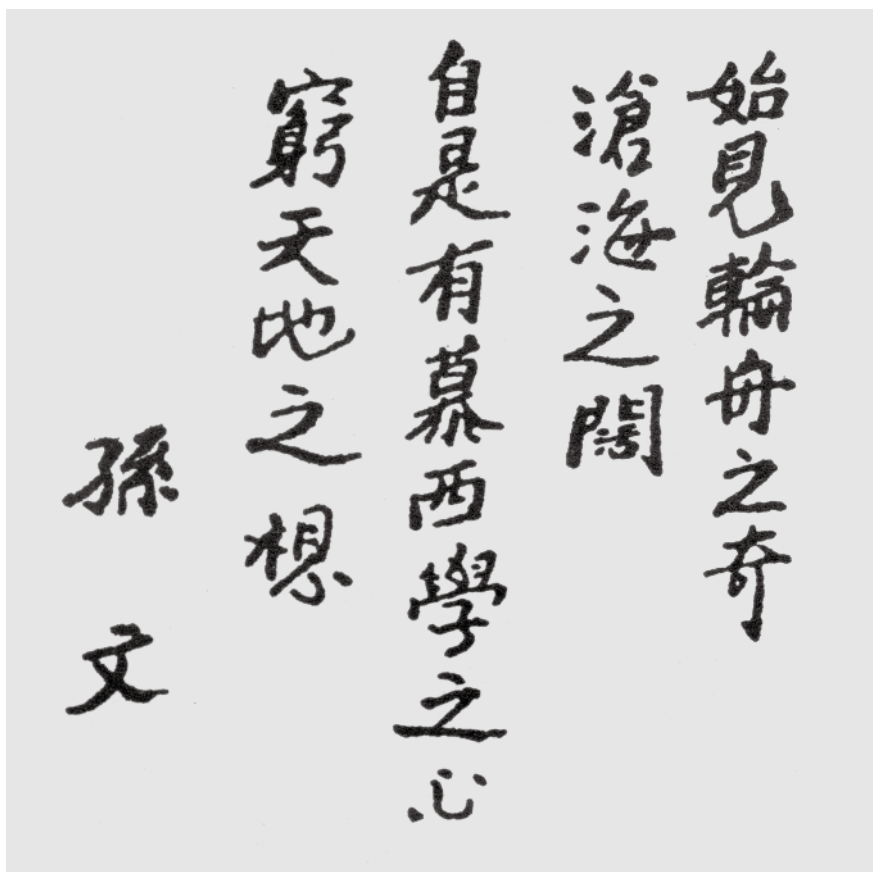 始見輪舟之奇
滄海之闊
自是有慕西學之心
窮天地之想
孫文